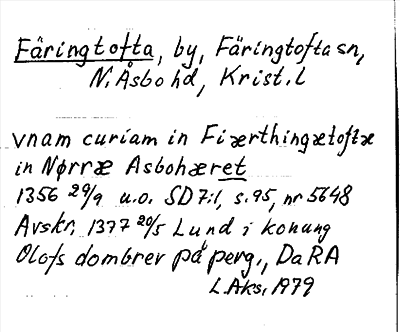 Färingtofta, by, Färingtofta sn,
N. Åsbo hd, Krist. l
vnam curiam in Fiærthingætoftæ
in Nørræ Asbohæret
1356 29/9 u.o. SD 7:1, s. 95, nr 5648
Avskr. 1377 20/5 Lund i konung
Olofs dombrev på perg., DaRA
L. Aks. 1979